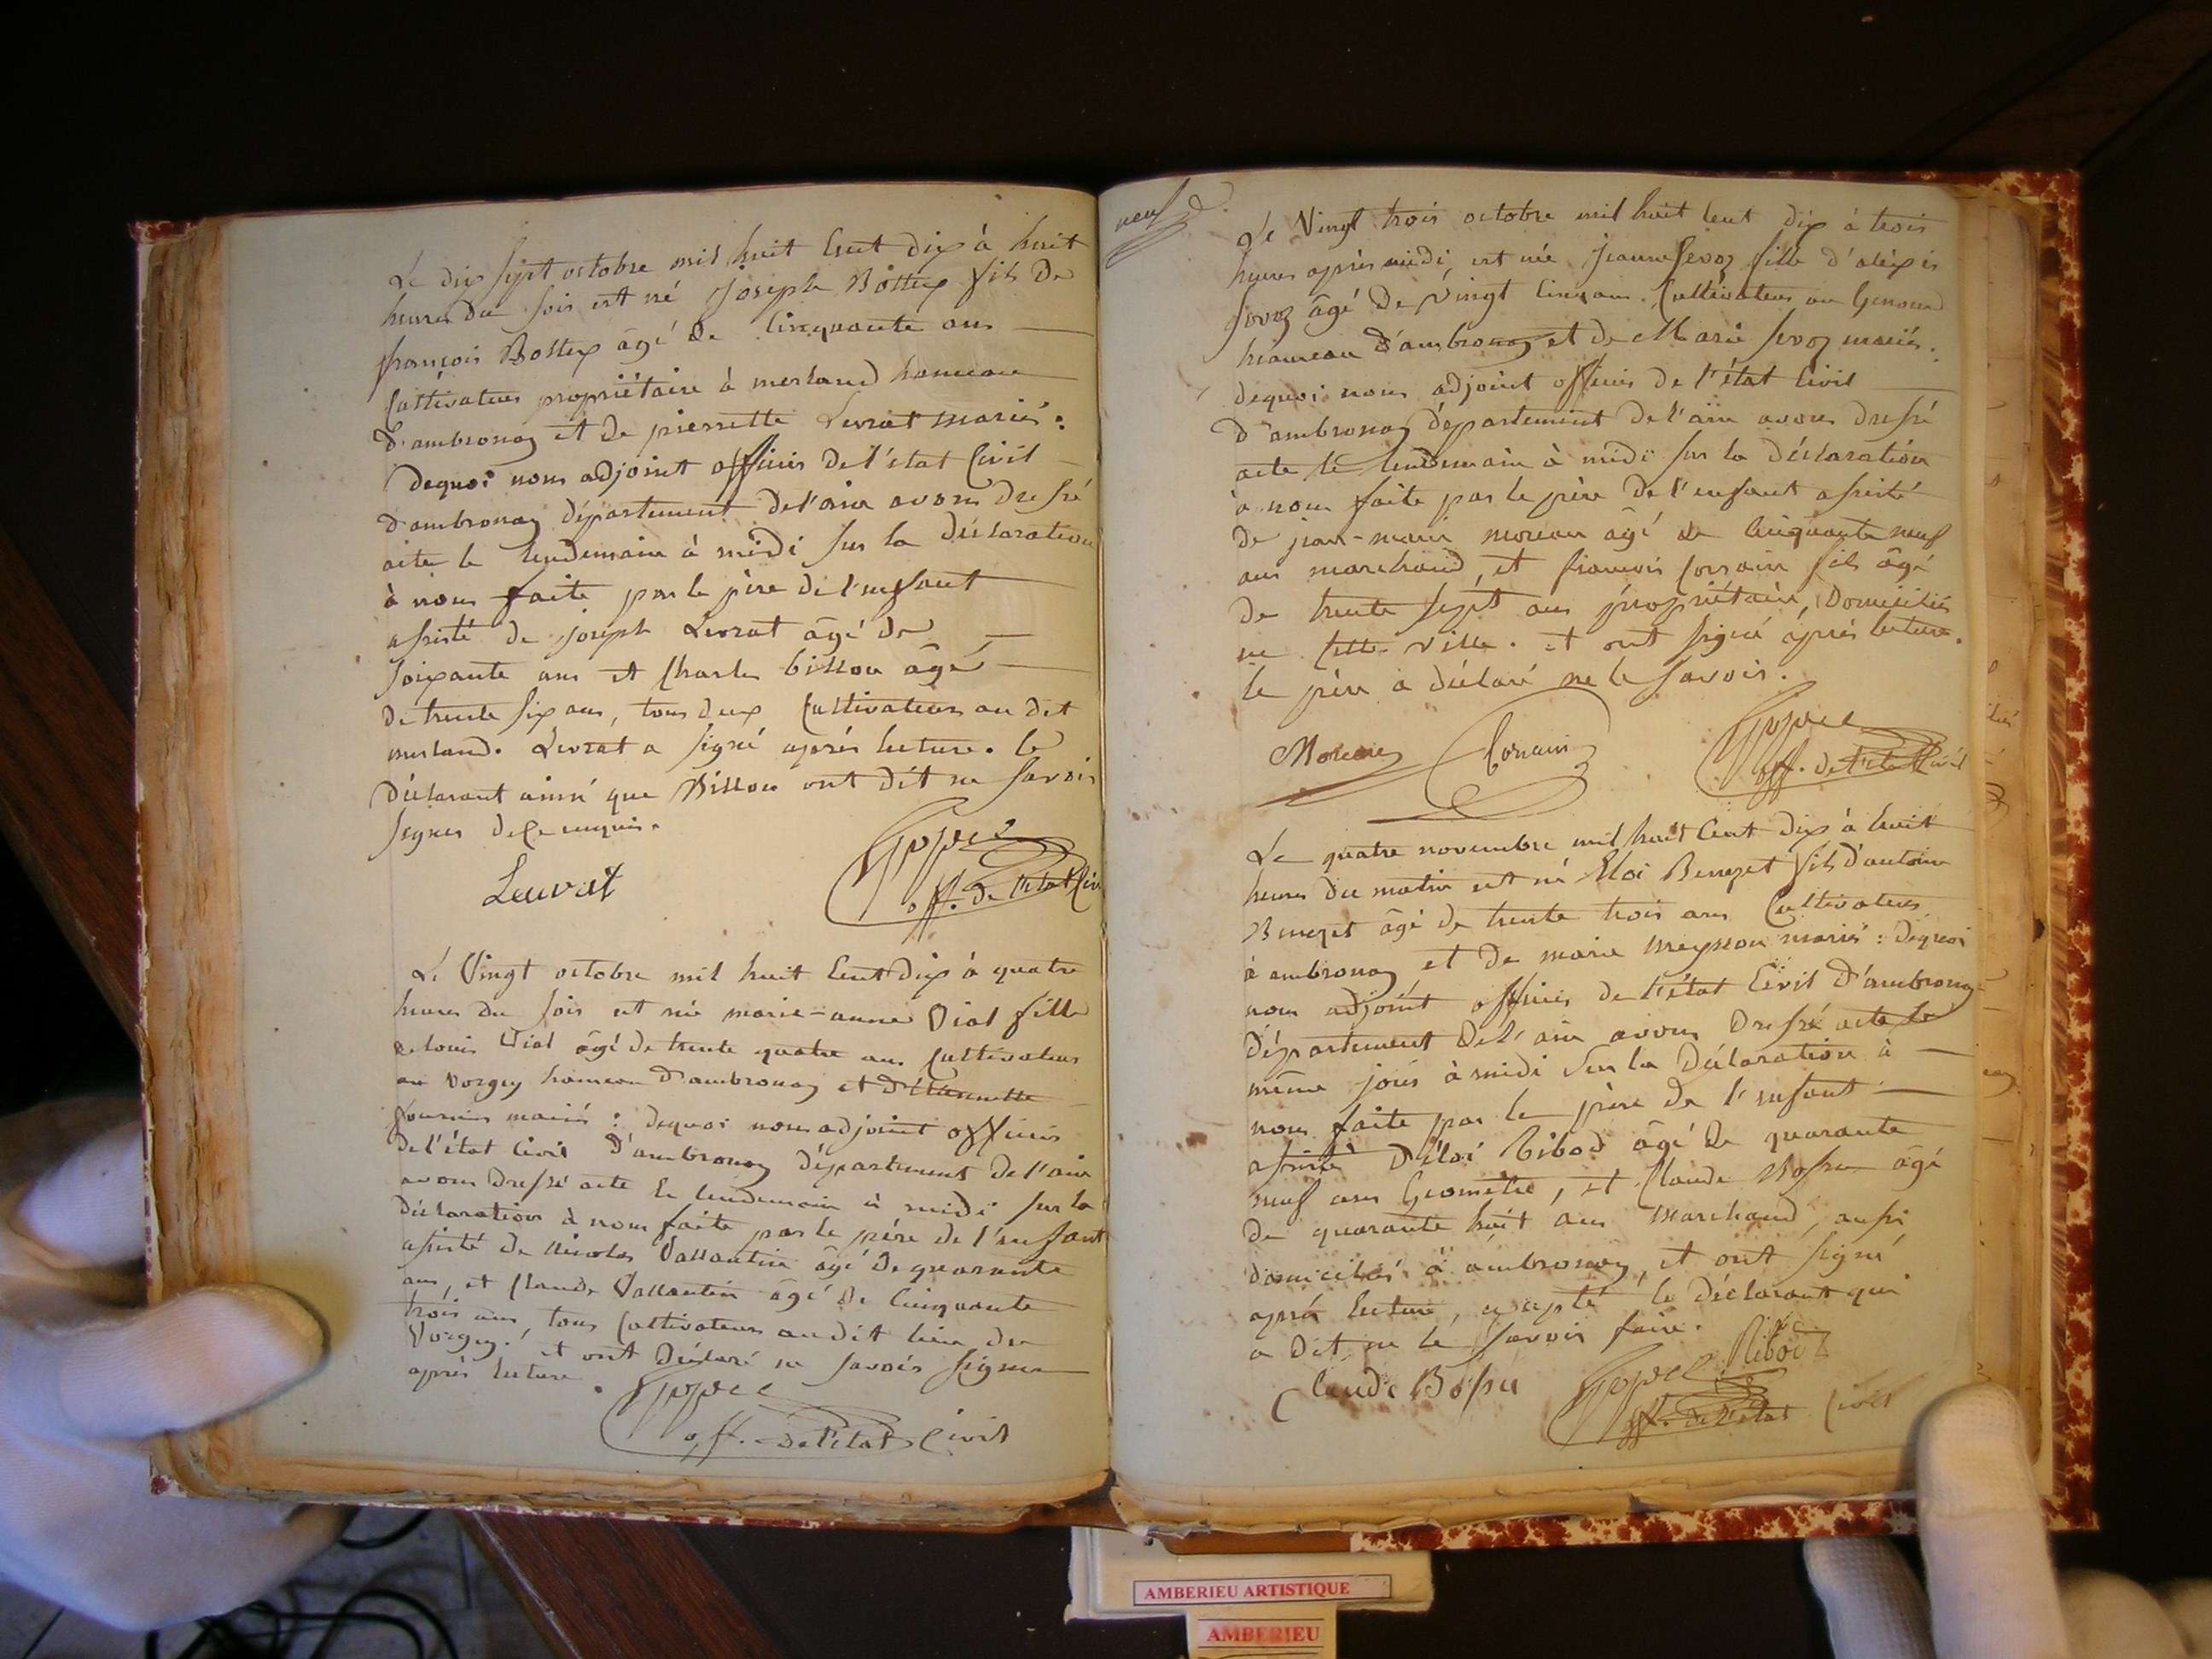 Le dix sept octobre mil huit Cent dix à huit
heures du soir est né Joseph Bottex fils de
françois Bottex âgé de Cinquante ans
Cultivateur propriétaire à merland hameau
d'ambronay et de pierrette Livrat mariés :
Dequoi nous adjoint officier de l'état Civil
d'ambronay département de l'ain avons dressé
acte le lendemain à midi sur la déclaration
à nous faite par le père de l'enfant
assisté de joseph Livrat âgé de
soixante ans et Charles billon âgé
de trente six ans, tous deux Cultivateurs au dit
merland. Livrat a signé après lecture. le
déclarant ainsi que Billon ont dit ne savoir
signer de ce enquis.
Leuvrat
off. de l'état Civ
Le Vingt octobre mil huit Cent dix à quatre
heures du soir est née marie-anne Vial fille
de louis Vial âgé de trente quatre ans Cultivateur
au Vorgey hameau d'ambronay et d'étiennette
fournier mariés : dequoi nous adjoint officier
de l'état Civil d'ambronay département de l'ain
avons dressé acte le lendemain à midi sur la
déclaration à nous faite par le père de l'enfant
assisté de nicolas Vallantin âgé de quarante
ans, et Claude Vallantin âgé de Cinquante
trois ans, tous Cultivateurs au dit lieu du
Vorgey. et ont déclaré ne savoir signer
après lecture.
off. de l'état Civil
neuf
Le Vingt trois octobre mil huit Cent dix à trois
heures après midi, est née Jeanne Sevoz fille d'aléxis
Sevoz âgé de Vingt Cinq ans. Cultivateur au Genoud
hameau d'ambronay et de Marie Sevoz mariés.
dequoi nous adjoint officier de l'état Civil
d'ambronay département de l'ain avons dressé
acte le lendemain à midi sur la déclaration
à nous faite par le père de l'enfant assisté
de jean-marie moreau âgé de Cinquante neuf
ans marchand, et francois Corrain fils âgé
de trente sept ans propriétaire, Domiciliés
en Cette Ville. et ont signé après lecture.
le père a déclaré ne le savoir.
Moreau Corrain
off. de l'état Civil
Le quatre novembre mil huit Cent dix à huit
heures du matin est né Eloi Benezet fils d'antoine
Benezet âgé de trente trois ans Cultivateur
à ambronay et de marie Meysson mariés : dequoi
nous adjoint officier de l'état Civil d'ambronay
département de l'ain avons dressé acte le
même jour à midi sur la déclaration à
nous faite par le père de l'enfant
assisté d'éloi Ribod âgé de quarante
neuf ans Géomètre, et Claude Bossu âgé
de quarante huit ans marchand, aussi
domiciliés à ambronay, et ont signé
après lecture, excepté le déclarant qui
a dit ne le savoir faire.
Ribod
Claude Bossu
off. de l'état Civil
AMBERIEU ARTISTIQUE
AMBERIEU